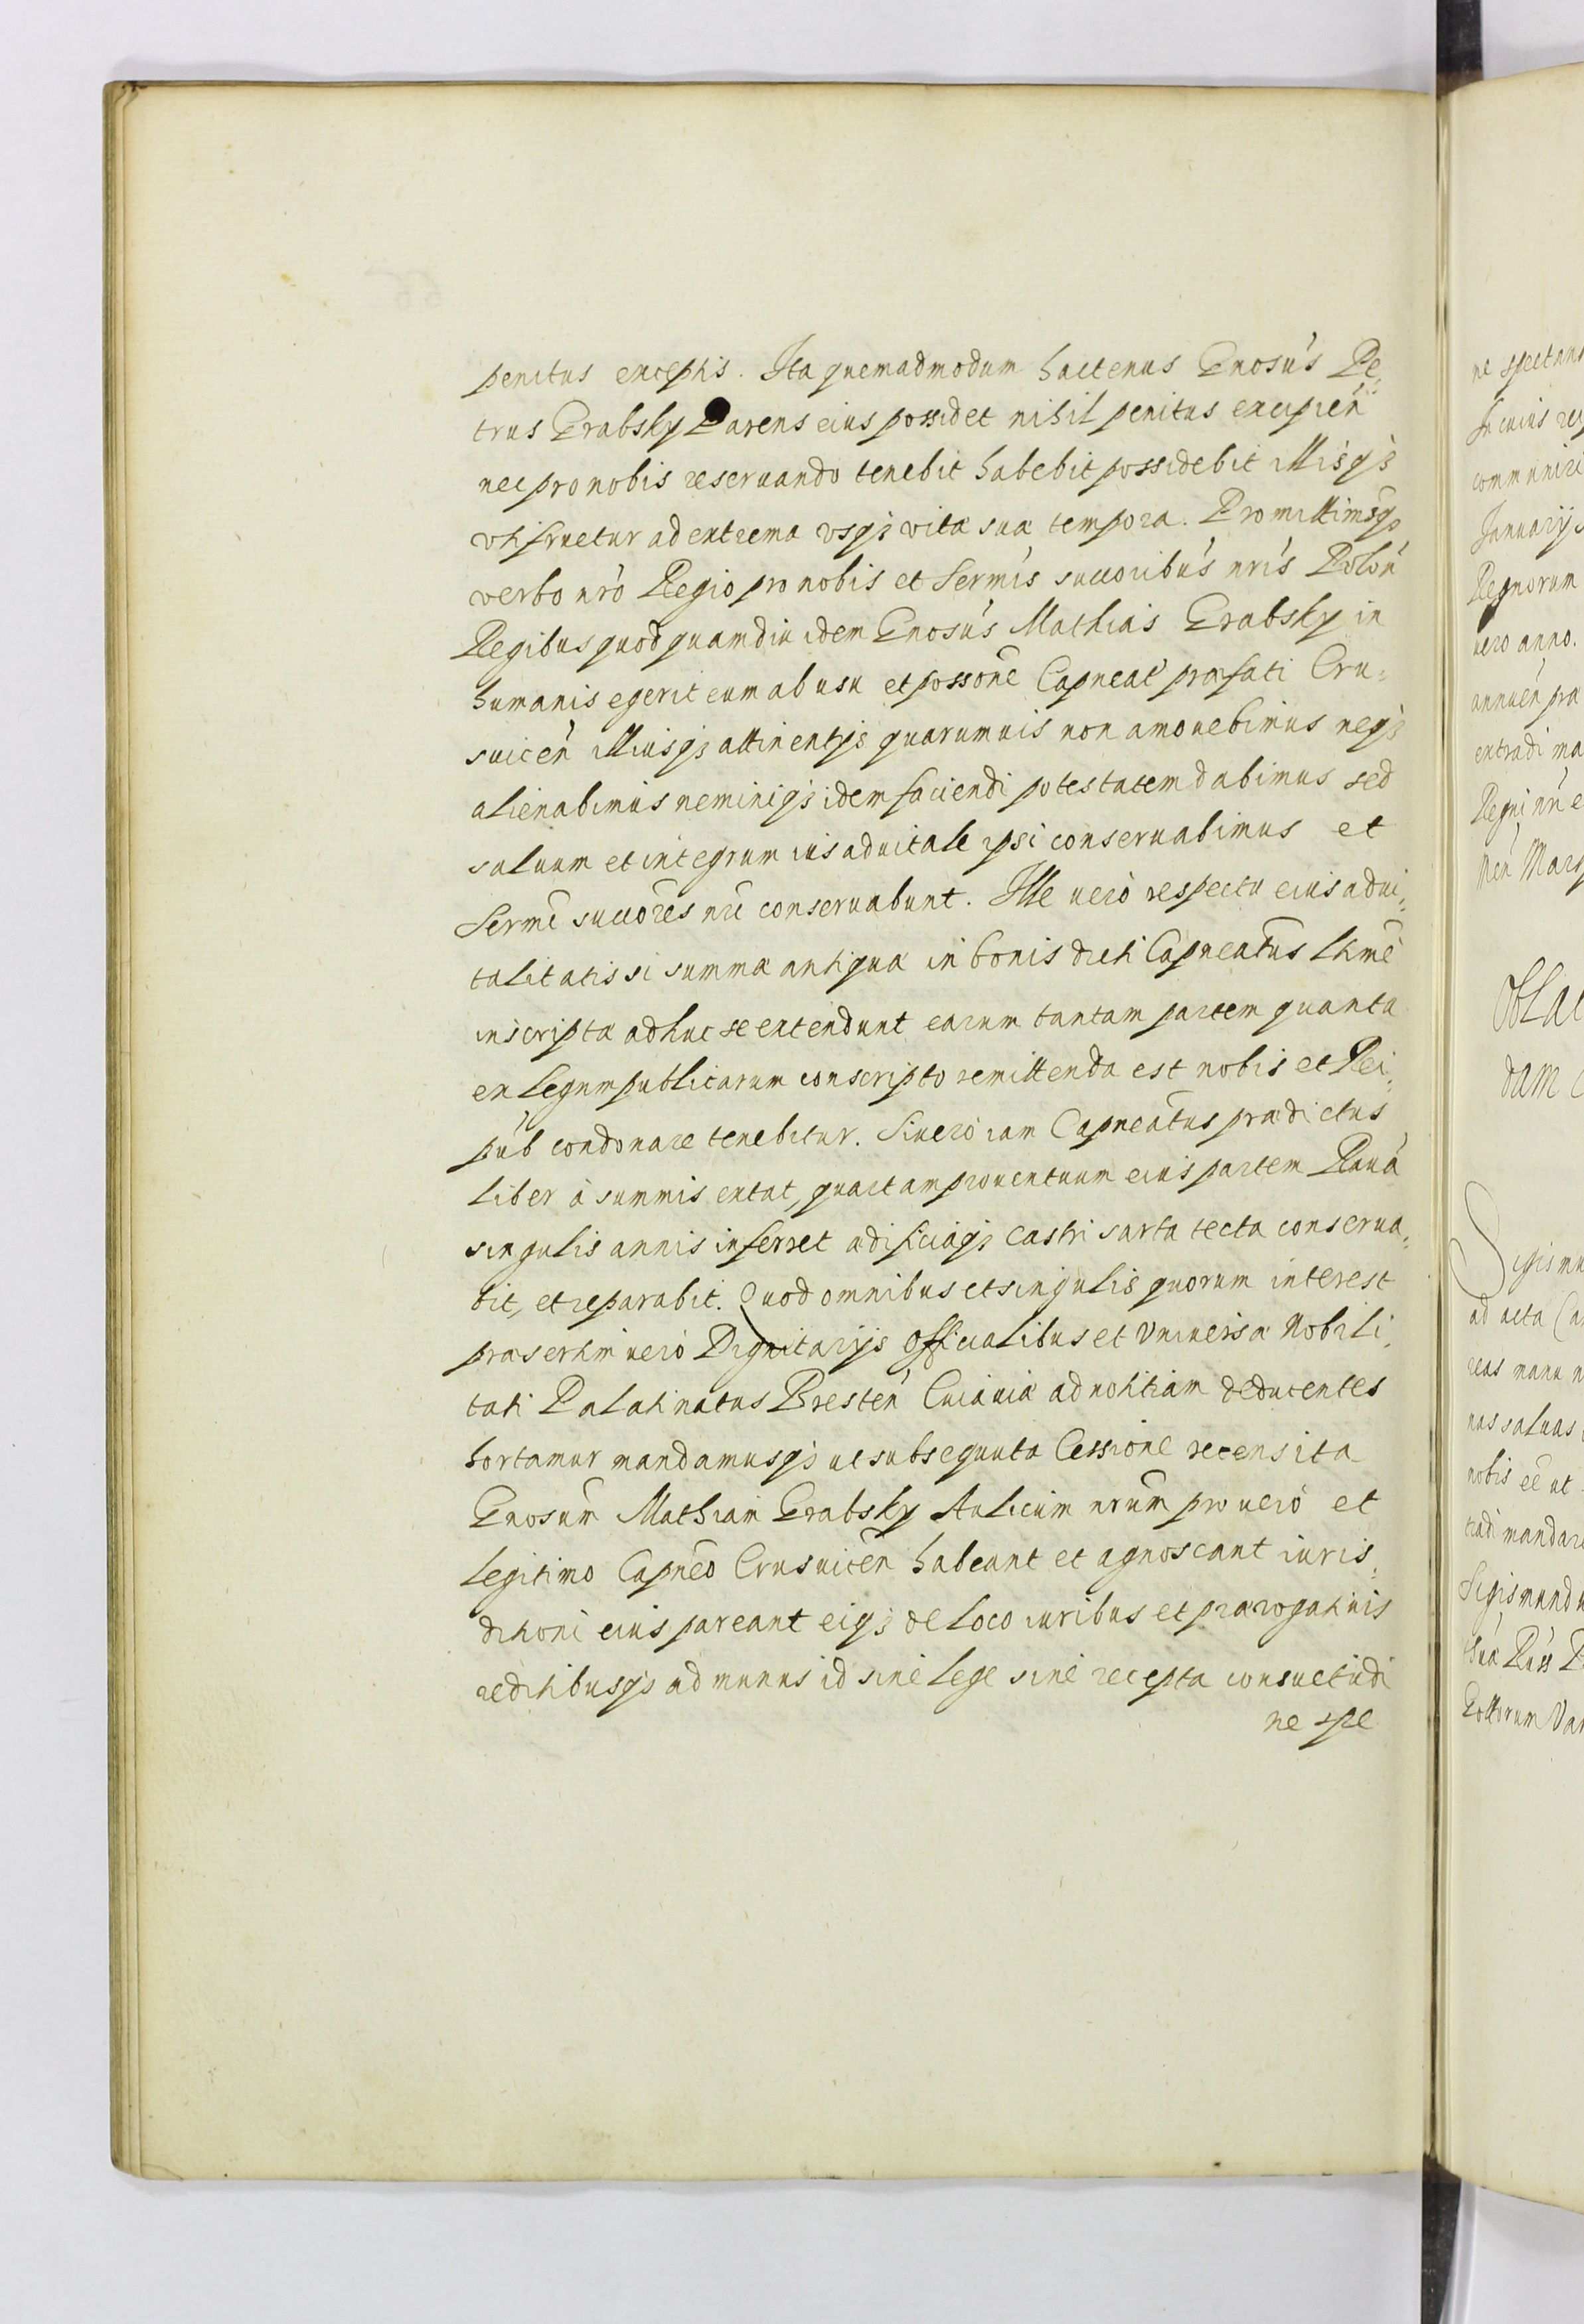 penitus exceptis. Ita quemadmodum hactenus Gnosus Pe-
trus Grabsky Parens eius possidet nihil penitus excipien
nec pro nobis reseruando tenebit habebit possidebit illisq3
vtifruetur ad extrema vsq3 vitæ suæ tempora. Promittimusq3
verbo nrõ Regio pro nobis et Sermis succoribus nris Polon
Regibus quod quamdiu idem Gnosus Mathias Grabsky in
humanis egerit eum ab usu et possone Capneat præfati Cru-
suicen illiusq3 attinentijs quarumuis non amouebimus neq3
alienabimus neminiq3 idem faciendi potestatem dabimus sed
saluum et integrum ius aduitale ipsi conseruabimus et
Sermi succores nri conseruabunt. Ille uero respectu eius adui-
talitatis si summæ antiquæ in bonis dicti Capneatus ltime
inscriptæ adhuc se extendunt earum tantam partem quanta
ex legum publicarum conscripto remittenda est nobis et Rei-
pub condonare tenebitur. Si uero iam Capneatus prædictus
liber à summis extat, quartam prouentuum eius partem Rauã
singulis annis inferret ædificiaq3 Castri sarta tecta conserua-
bit, et reparabit. Quod omnibus et singulis quorum interest
præsertim uero Dignitarijs Officialibus et Vniuersæ Nobili-
tati Palatinatus Bresten Cuiauiæ ad notitiam deducentes
hortamur mandamusq3 ut subsequuta Cessione recensita
Gnosum Mathiam Grabsky Aulicum nrum pro uero et
legitimo Capneo Crusuicen habeant et agnoscant iuris-
dictioni eius pareant eiq3 de loco iuribus et prærogatiuis
reditibusq3 ad munus id siue lege siue recepta consuetudi
ne spe
ne spectant
In cuius
communiri
Januarij
Regnorum
uero anno.
annuen
Regni nri
Oblat
dam
Sigismu
ad acta
reas manu
nas saluas
nobis eē ut
tradi mandare
Sigismund
Gottorum Van